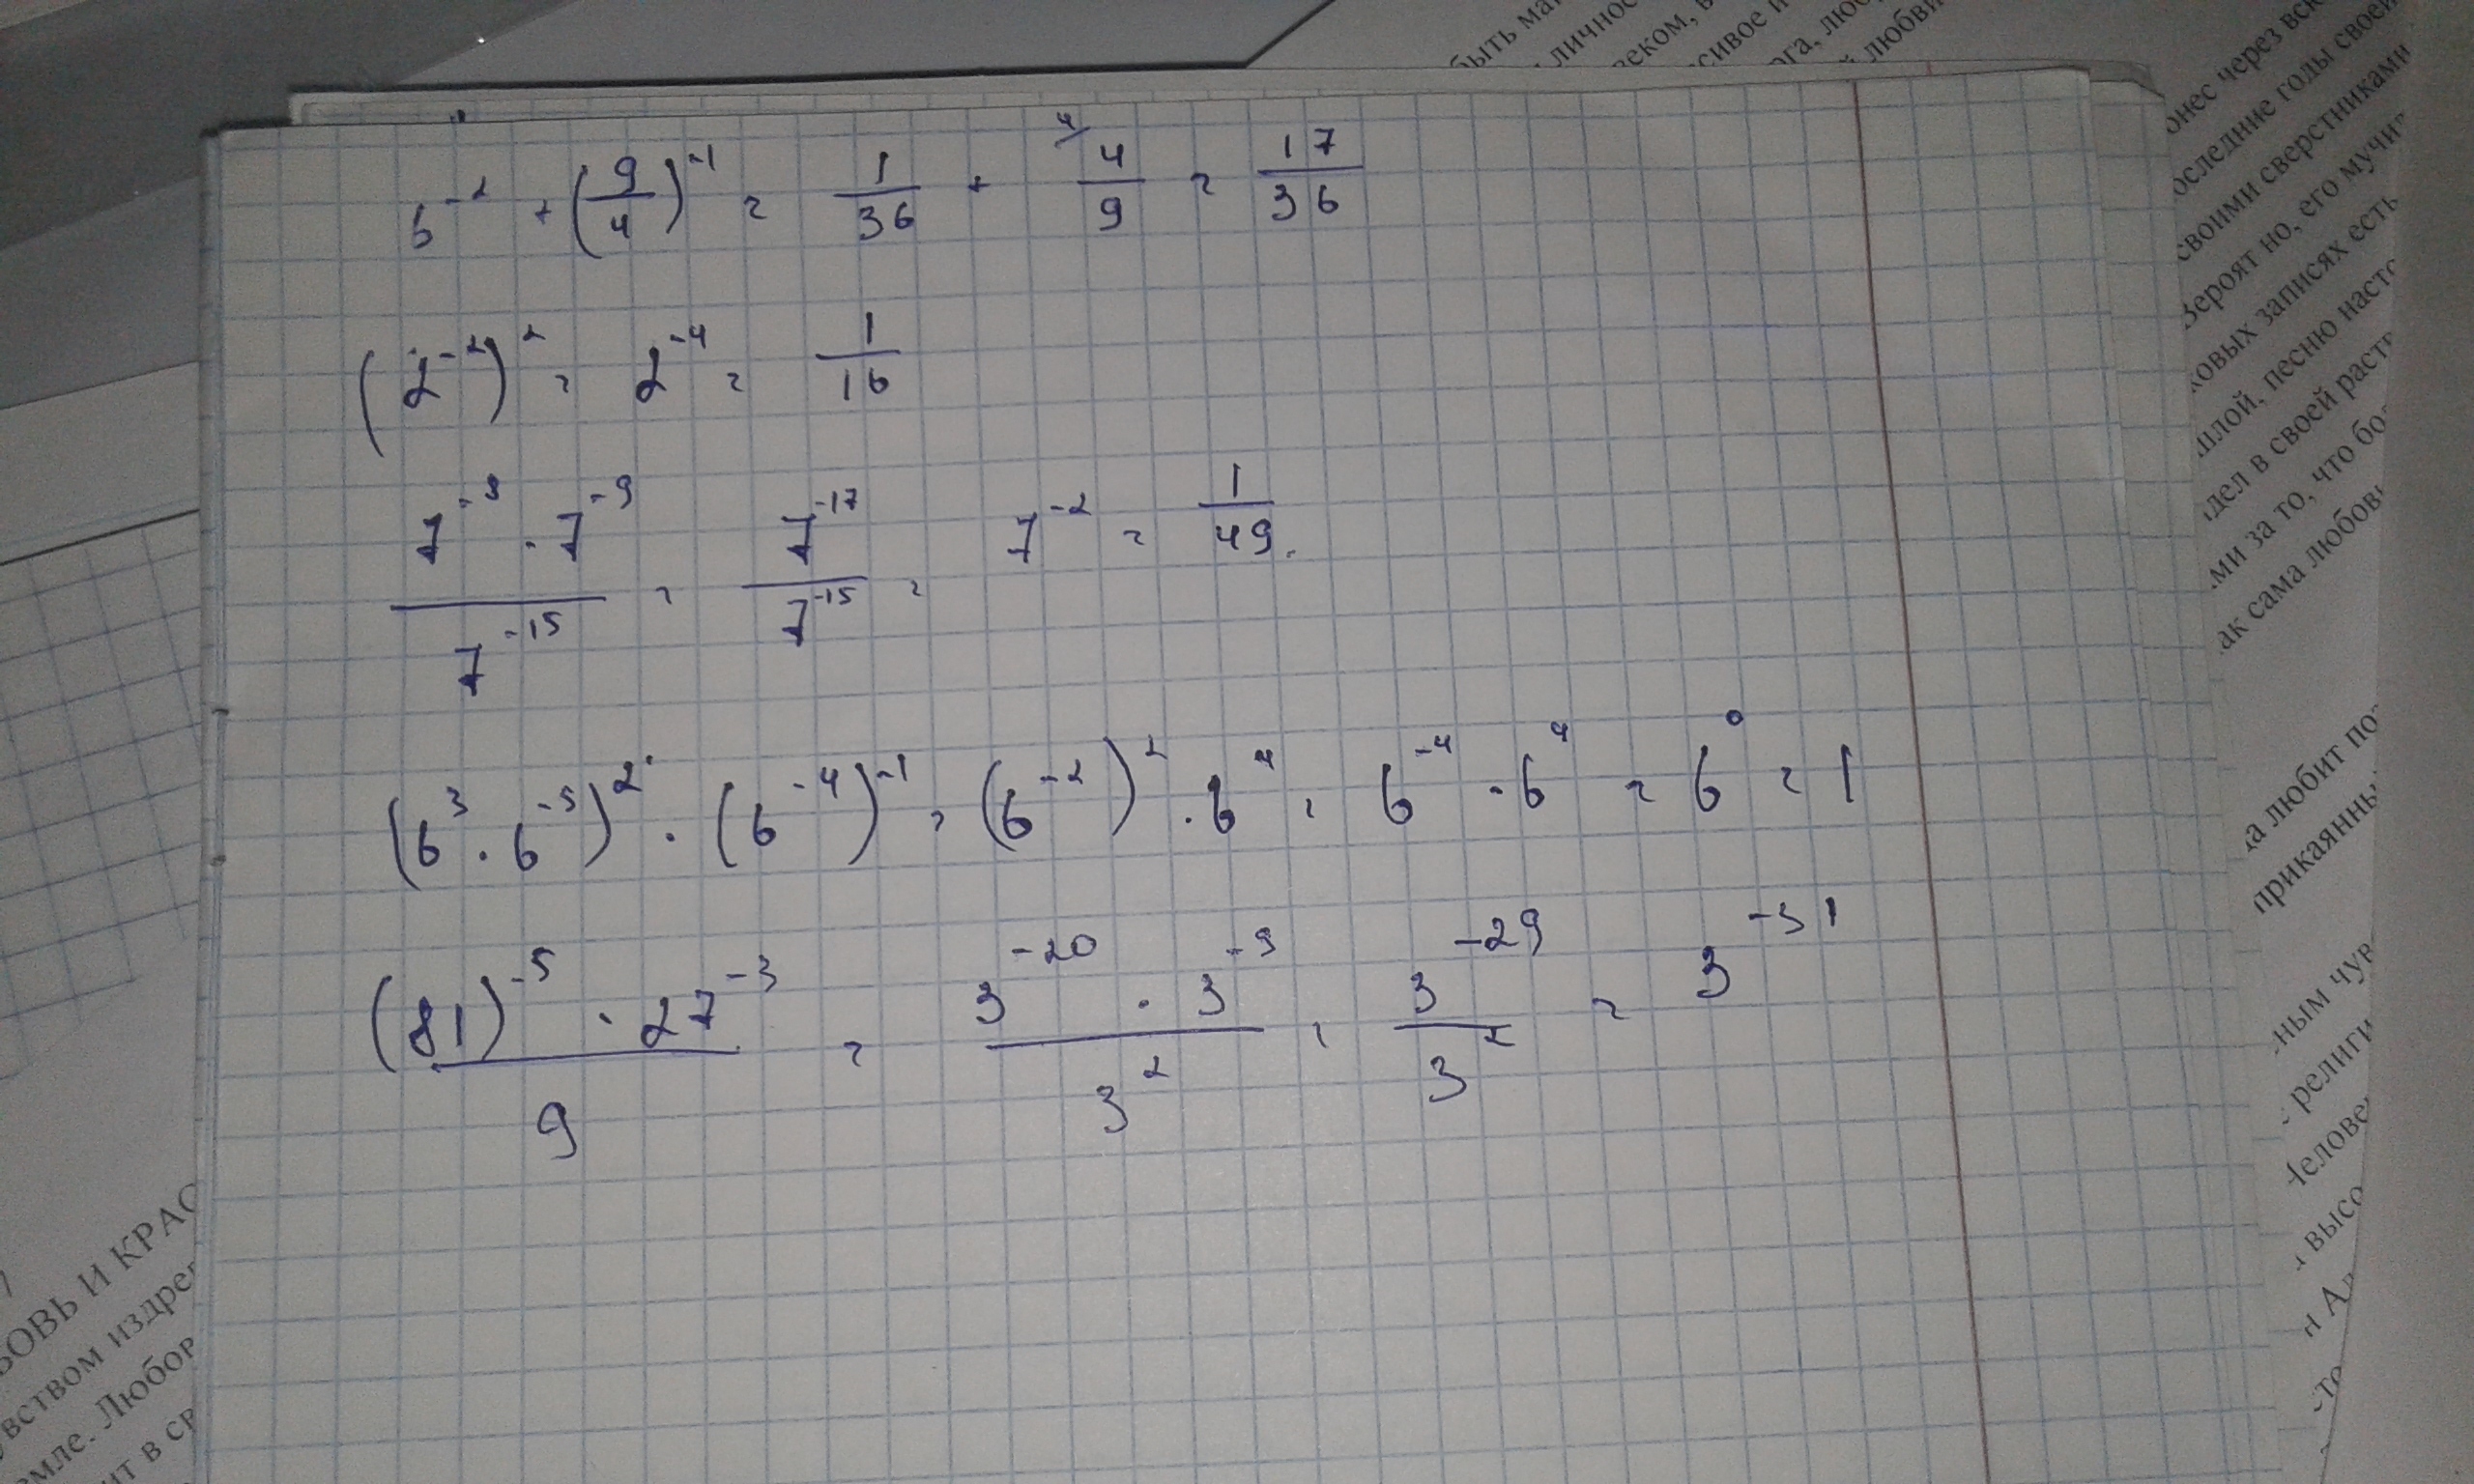 6^-2 + (9/4)^-1 = 1/36 + 4/ 4/9 = 17/36
(2^-2)^2 = 2^-4 = 1/16
7^-8 · 7^-9 / 7^-15 = 7^-17 / 7^-15 = 7^-2 = 1/49.
(6^3 · 6^-5)^2 · (6^-4)^-1 = (6^-2)^2 · 6^4 = 6^-4 · 6^4 = 6^0 = 1
(81)^-5 · 27^-3 / 9 = 3^-20 · 3^-9 / 3^2 = 3^-29 / 3^2 = 3^-31
быть
личнос
сивое и
ога, лю
любви
онес через вс
оследние годы своей
своими сверстниками
Вероят но, его мучил
ковых записях есть
шлой, песню насто
дел в своей раст
ми за то, что бо
ак сама любовь
а любит по
прикаянны
ным чув
религи
Челове
высо
и Ал
сто
БОВЬ И КРАС
вством издре
емле. Любов
ит в ср